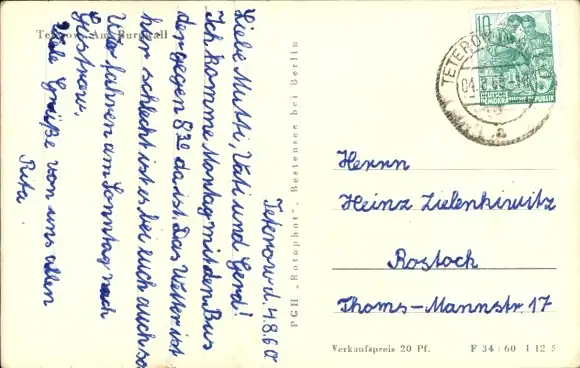 Teterow, Am Burgwall
Teterow d. 4.8.60
Liebe Mutti, Vati und Gerd!
Ich komme Montag mit dem Bus
der gegen 8²⁰ da ist. Das Wetter ist
hier schlecht ist es bei Euch auch so
Wir fahren am Sonntag nach
Güstrow.
Viele Grüße von uns allen
Rita
PGH „Rotophot", Bestensee bei Berlin
10
DEUTSCHE
DEMOKRATISCHE REPUBLIK
TETEROW
Herrn
Heinz Zielenkiwitz
Rostock
Thoms-Mannstr. 17
Verkaufspreis 20 Pf.
F 34 60 1 12 S